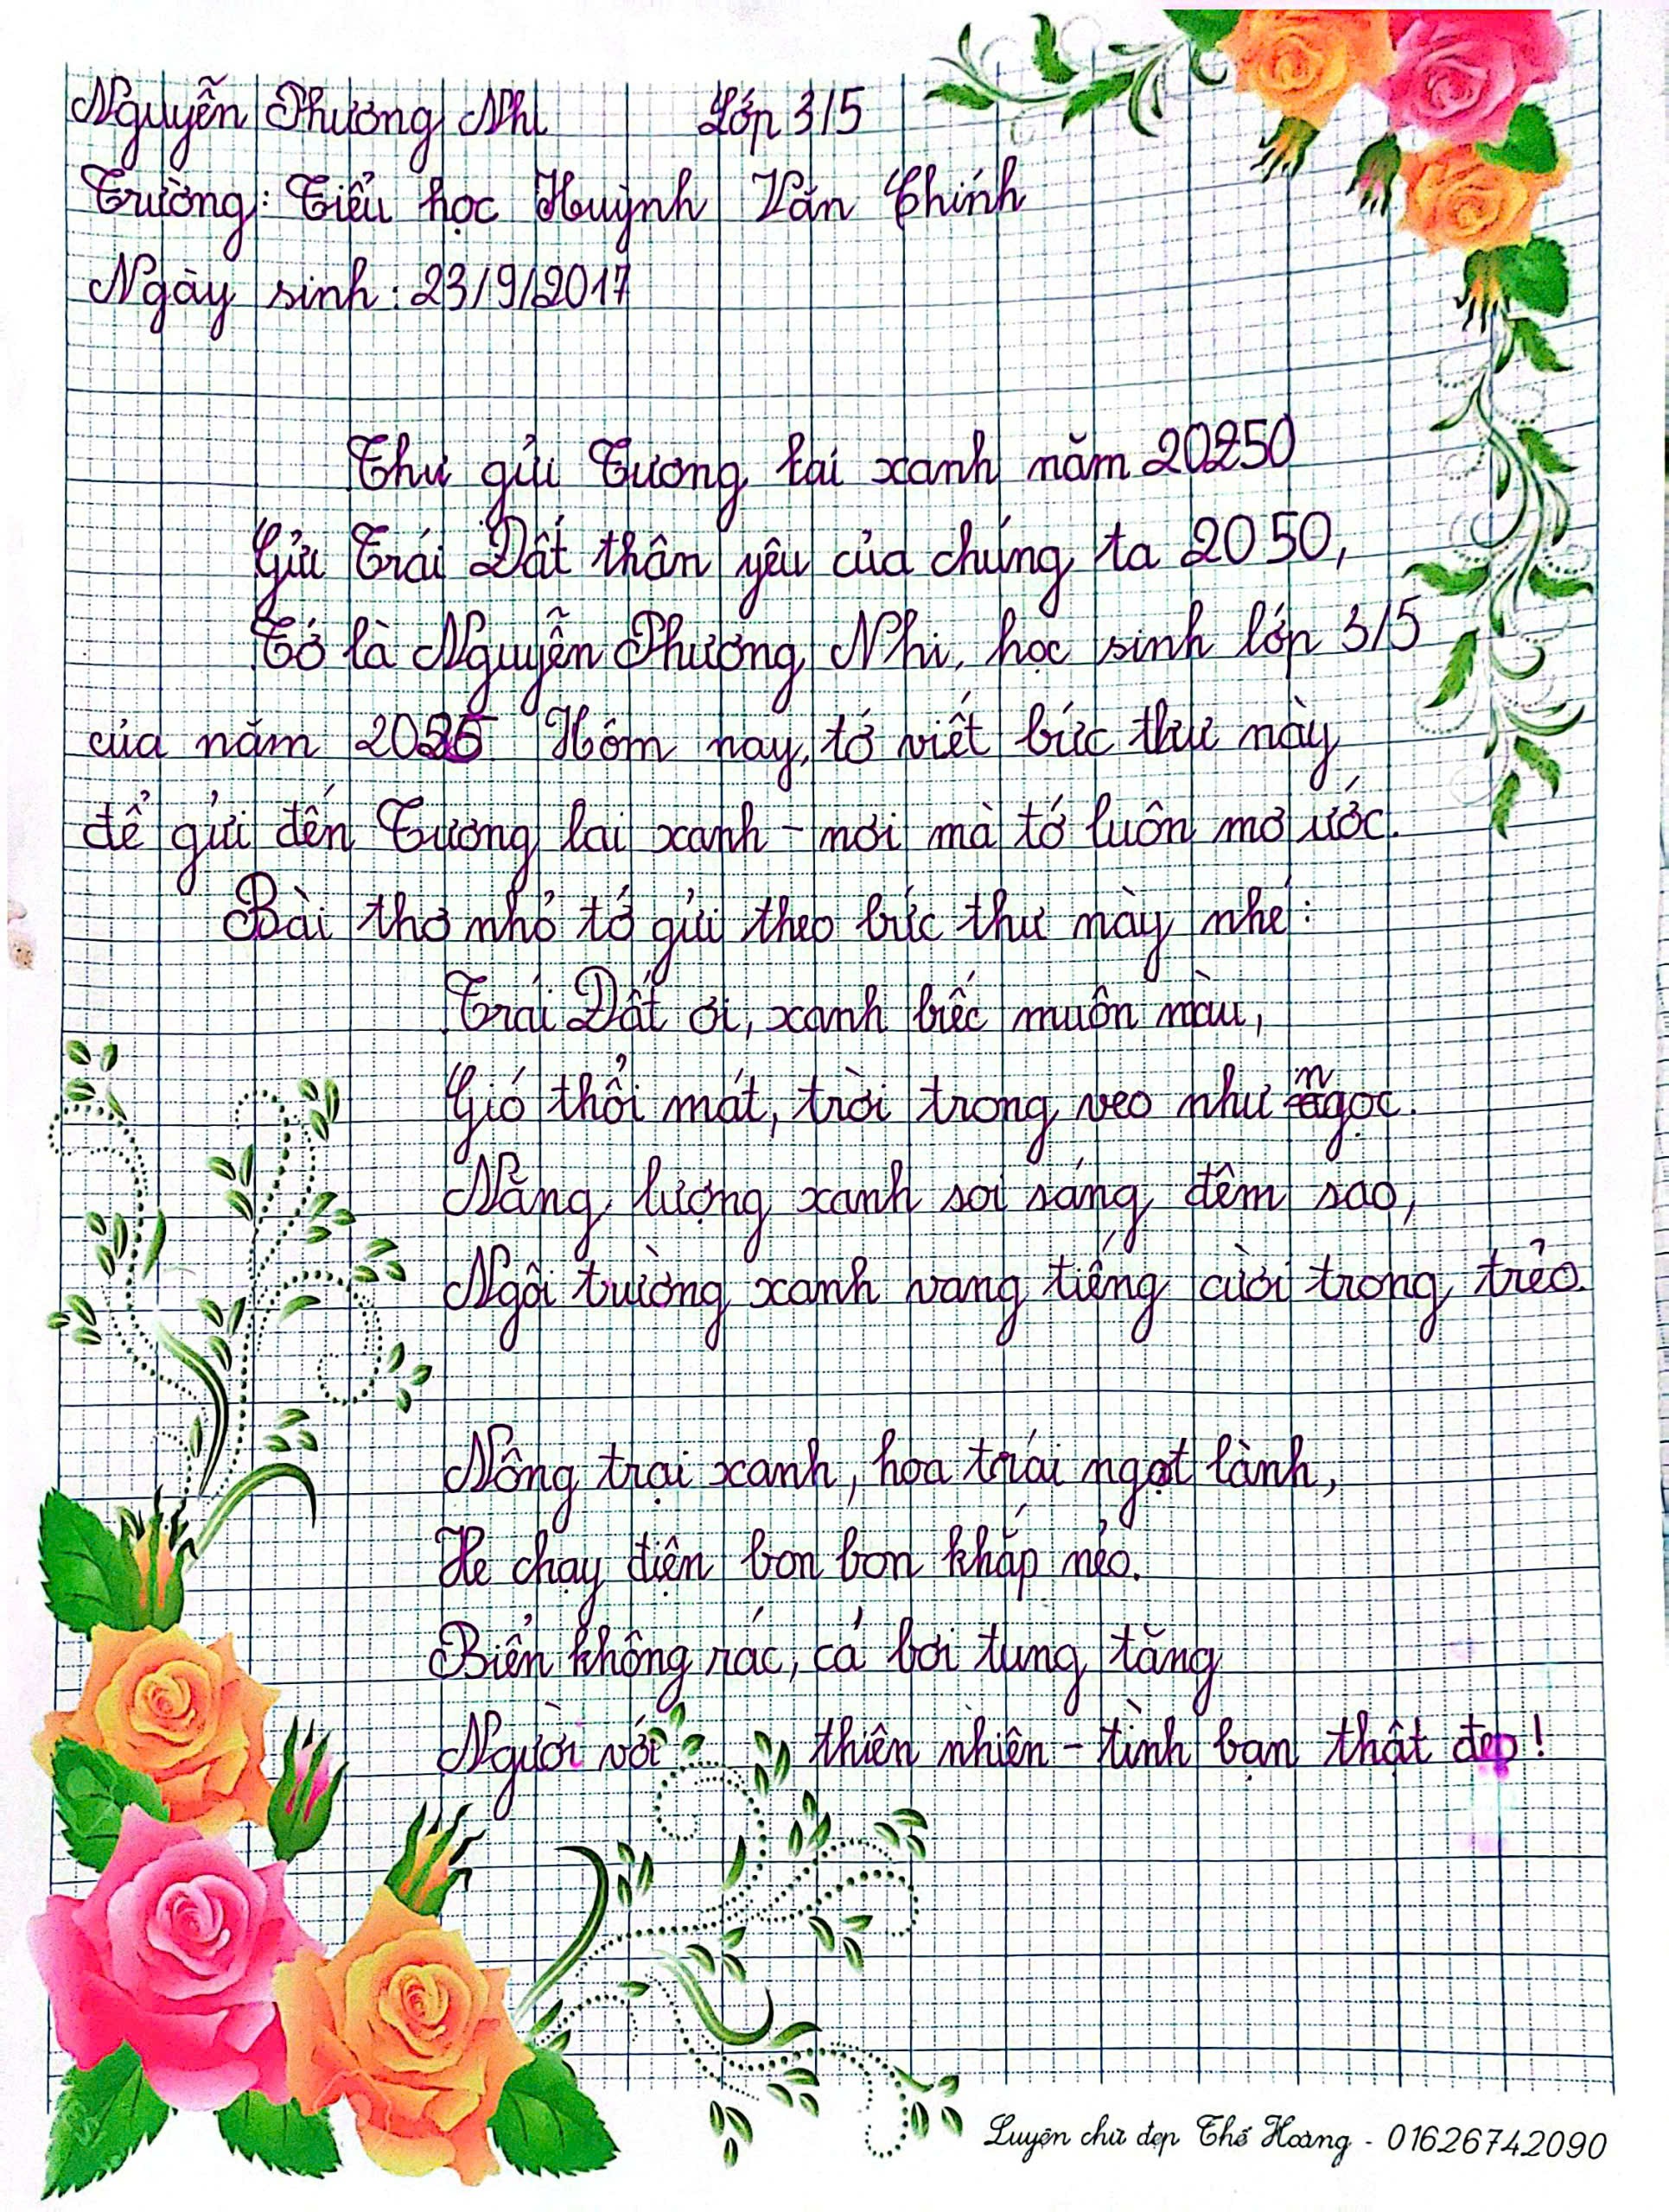 Nguyễn Phương Nhi Lớp 3/5
Trường: Tiểu học Huỳnh Văn Chính
Ngày sinh: 23/9/2017
Thư gửi Tương lai xanh năm 20250
Gửi Trái Đất thân yêu của chúng ta 2050,
Tớ là Nguyễn Phương Nhi, học sinh lớp 3/5
của năm 2025 Hôm nay, tớ viết bức thư này
để gửi đến Tương lai xanh - nơi mà tớ luôn mơ ước.
Bài thơ nhỏ tớ gửi theo bức thư này nhé:
Trái Đất ơi, xanh biếc muôn màu,
Gió thổi mát, trời trong veo như ngọc.
Năng lượng xanh soi sáng đêm sao,
Ngôi trường xanh vang tiếng cười trong trẻo.
Nông trại xanh, hoa trái ngọt lành,
Xe chạy điện bon bon khắp nẻo.
Biển không rác, cá bơi tung tăng
Người với thiên nhiên - tình bạn thật đẹp!
Luyện chữ đẹp Thế Hoàng - 01626742090